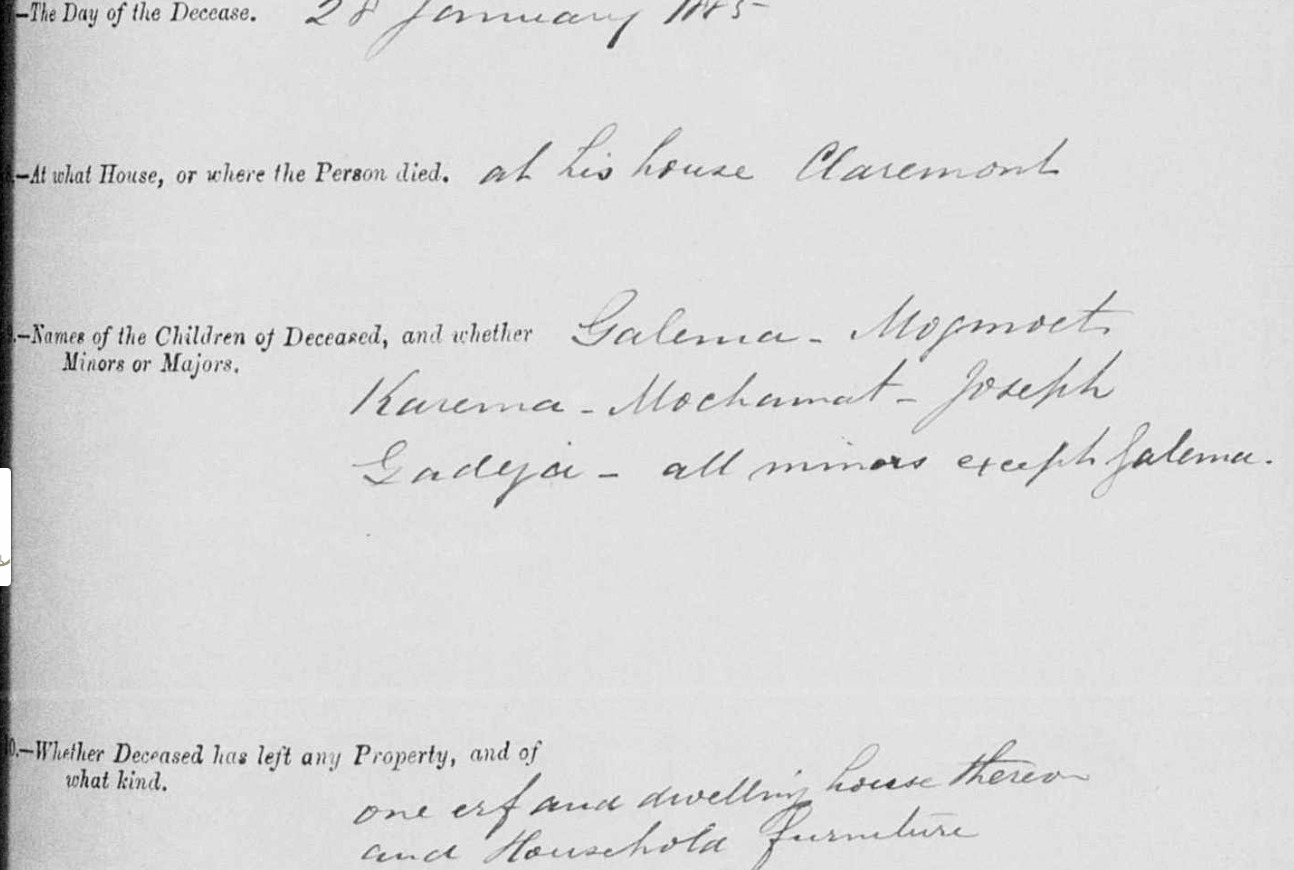 —The Day of the Decease. 28 January 1885
—At what House, or where the Person died. at his house Claremont
.—Names of the Children of Deceased, and whether Minors or Majors. Galema - Mogmoet
Karema - Mochamat - Joseph
Gadeja - all minors except Galema.
0.—Whether Deceased has left any Property, and of
what kind.
one erf and dwelling house thereon
and Household furniture